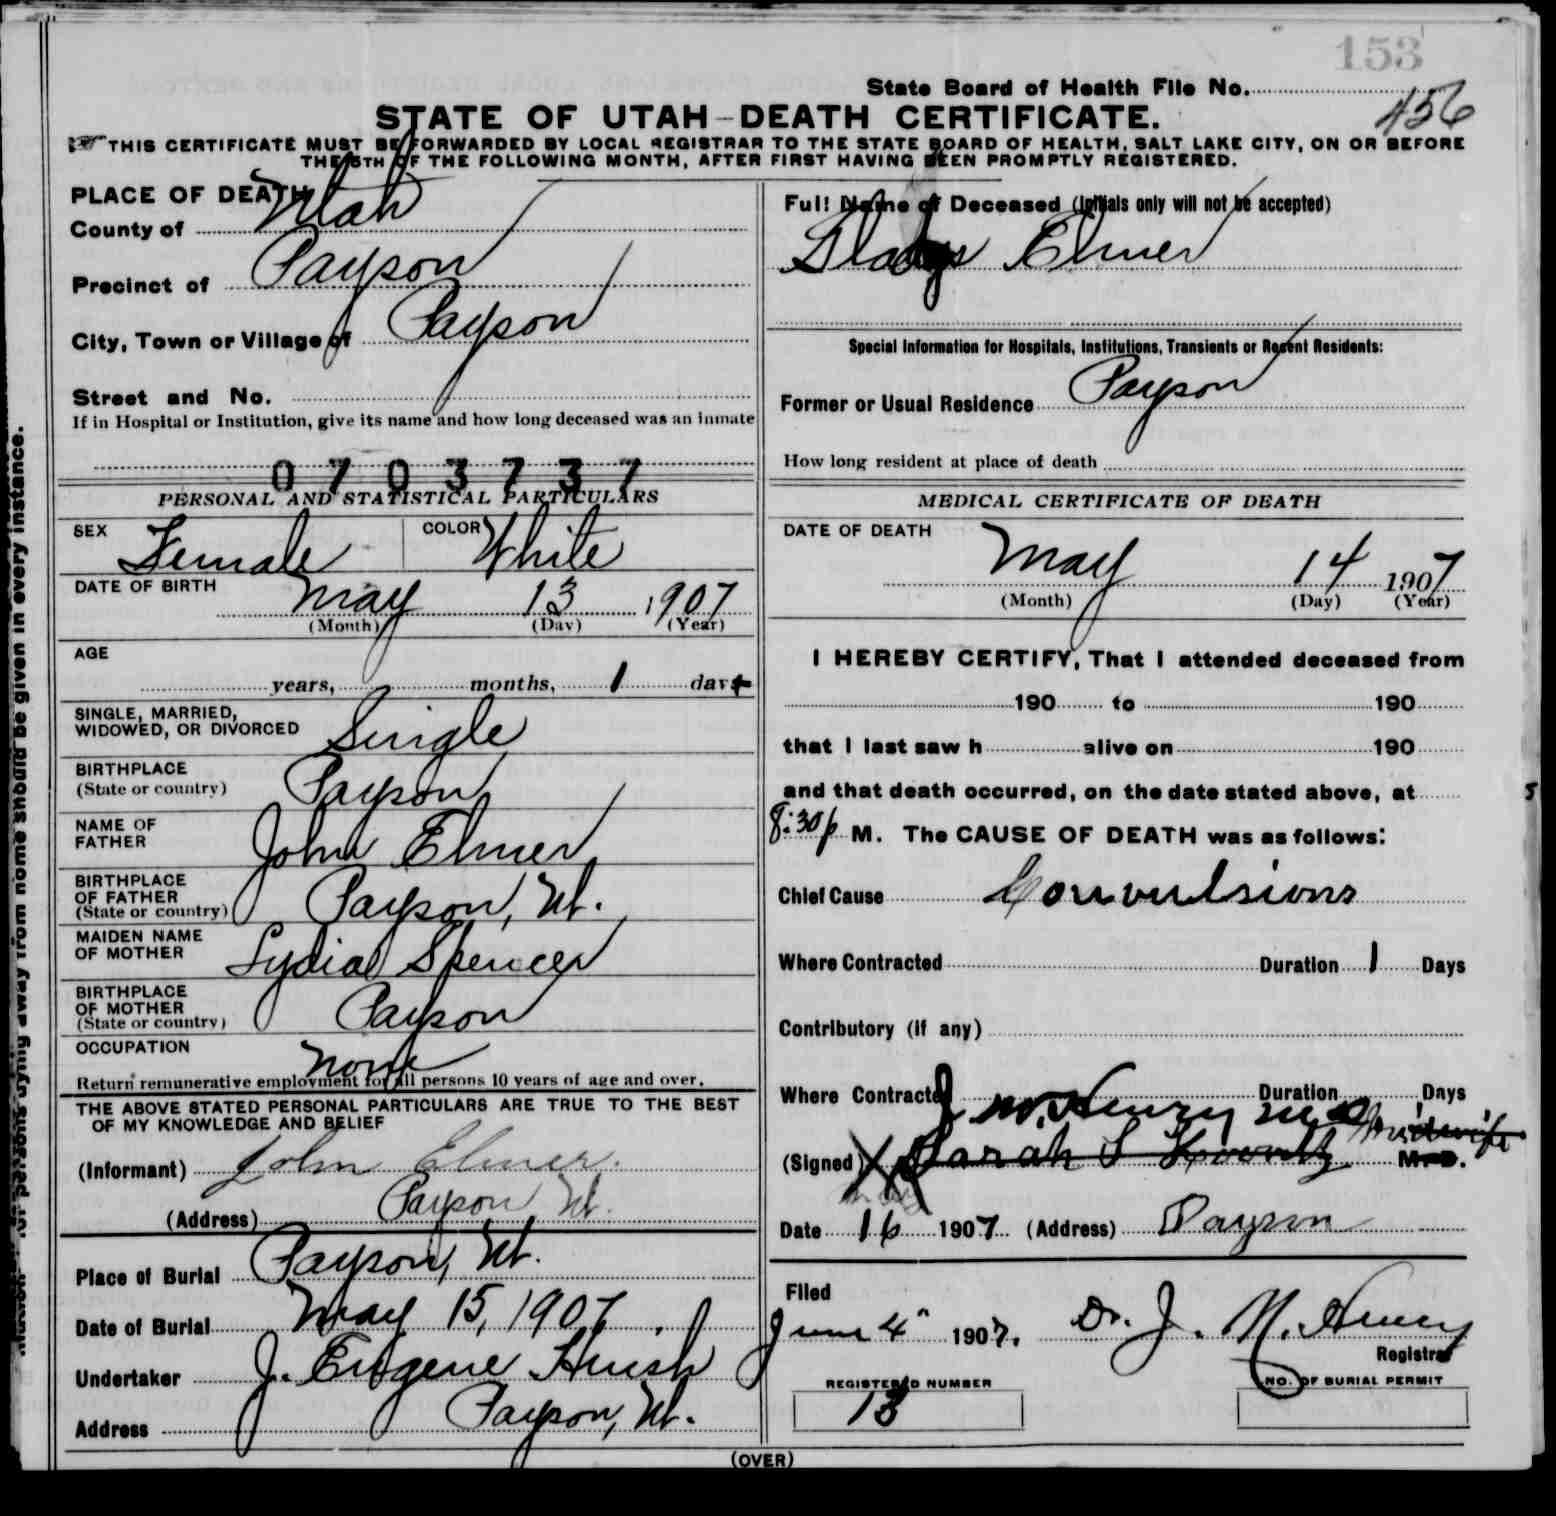 153
State Board of Health File No. 456
STATE OF UTAH-DEATH CERTIFICATE.
THIS CERTIFICATE MUST BE FORWARDED BY LOCAL REGISTRAR TO THE STATE BOARD OF HEALTH, SALT LAKE CITY, ON OR BEFORE
THE 5TH OF THE FOLLOWING MONTH, AFTER FIRST HAVING BEEN PROMPTLY REGISTERED.
PLACE OF DEATH
County of Utah
Precinct of Payson
City, Town or Village of Payson
Street and No.
If in Hospital or Institution, give its name and how long deceased was an inmate
0703737
PERSONAL AND STATISTICAL PARTICULARS
SEX Female COLOR White
DATE OF BIRTH May 13 1907
(Month) (Day) (Year)
AGE
years, months, 1 day
SINGLE, MARRIED,
WIDOWED, OR DIVORCED Single
BIRTHPLACE
(State or country) Payson
NAME OF
FATHER John Elmer
BIRTHPLACE
OF FATHER
(State or country) Payson, Ut.
MAIDEN NAME
OF MOTHER Lydia Spencer
BIRTHPLACE
OF MOTHER
(State or country) Payson
OCCUPATION None
Return remunerative employment for all persons 10 years of age and over.
THE ABOVE STATED PERSONAL PARTICULARS ARE TRUE TO THE BEST
OF MY KNOWLEDGE AND BELIEF
(Informant) John Elmer.
(Address) Payson Ut.
Place of Burial Payson, Ut.
Date of Burial May 15, 1907.
Undertaker J. Eugene Huish
Address Payson, Ut.
Full Name of Deceased (Initials only will not be accepted)
Gladys Elmer
Special Information for Hospitals, Institutions, Transients or Recent Residents:
Former or Usual Residence Payson
How long resident at place of death
MEDICAL CERTIFICATE OF DEATH
DATE OF DEATH
May 14 1907
(Month) (Day) (Year)
I HEREBY CERTIFY, That I attended deceased from
190 to 190
that I last saw h alive on 190
and that death occurred, on the date stated above, at
8:30 p M. The CAUSE OF DEATH was as follows:
Chief Cause Convulsions
Where Contracted Duration 1 Days
Contributory (if any)
Where Contracted Duration Days
J. M. Henry M D
Midwife
(Signed) Sarah S M.D.
May
Date 16 1907 (Address) Payson
Filed
June 4" 1907. Dr. J. M. Henry
Registrar
REGISTERED NUMBER
13
NO. OF BURIAL PERMIT
(OVER)
for persons dying away from home should be given in every instance.